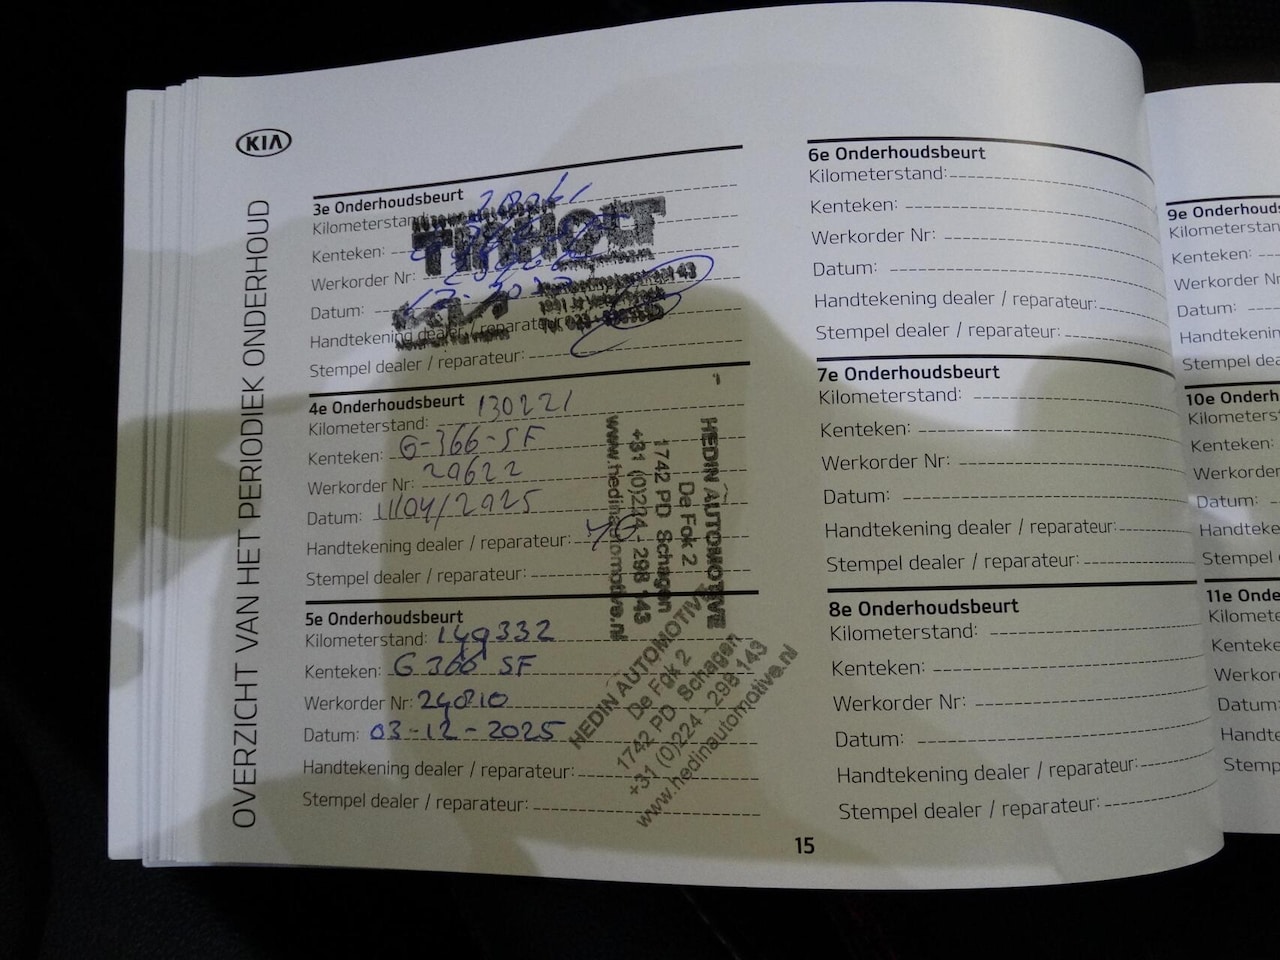 KIA
OVERZICHT VAN HET PERIODIEK ONDERHOUD
3e Onderhoudsbeurt
Kilometerstand:
Kenteken:
Werkorder Nr:
Datum:
Handtekening dealer / reparateur:
Stempel dealer / reparateur:
TIMHOLT
4e Onderhoudsbeurt
Kilometerstand: 130221
Kenteken: G-366-SF
Werkorder Nr: 29622
Datum: 11/04/2025
Handtekening dealer / reparateur:
Stempel dealer / reparateur:
HEDIN AUTOMOTIVE
De Fok 2
1742 PD Schagen
+31 (0)224 - 298 143
www.hedinautomotive.nl
5e Onderhoudsbeurt
Kilometerstand: 149332
Kenteken: G 366 SF
Werkorder Nr: 24810
Datum: 03-12-2025
Handtekening dealer / reparateur:
Stempel dealer / reparateur:
HEDIN AUTOMOTIVE
De Fok 2
1742 PD Schagen
+31 (0)224 - 298 143
www.hedinautomotive.nl
6e Onderhoudsbeurt
Kilometerstand:
Kenteken:
Werkorder Nr:
Datum:
Handtekening dealer / reparateur:
Stempel dealer / reparateur:
7e Onderhoudsbeurt
Kilometerstand:
Kenteken:
Werkorder Nr:
Datum:
Handtekening dealer / reparateur:
Stempel dealer / reparateur:
8e Onderhoudsbeurt
Kilometerstand:
Kenteken:
Werkorder Nr:
Datum:
Handtekening dealer / reparateur:
Stempel dealer / reparateur:
15
9e Onderhouds
Kilometerstan
Kenteken:
Werkorder Nr
Datum:
Handtekenin
Stempel dea
10e Onderh
Kilometerst
Kenteken:
Werkorder
Datum:
Handteken
Stempel
11e Onde
Kilomete
Kenteke
Werkor
Datum:
Handte
Stemp